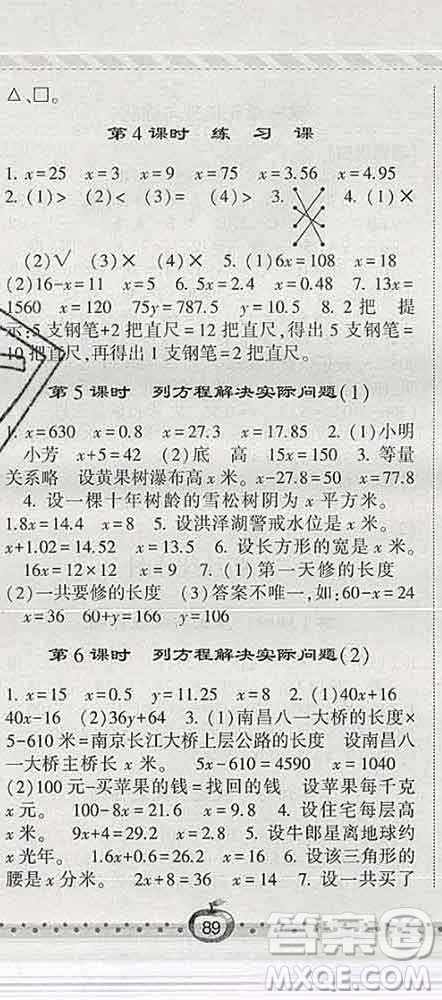 △、□。
第4课时 练 习 课
1. x=25 x=3 x=9 x=75 x=3.56 x=4.95
2. (1)> (2)< (3)= (4)> 3. 4. (1)×
(2)√ (3)× (4)× 5. (1)6x=108 x=18
(2)16-x=11 x=5 6. 5x=2.4 x=0.48 7. 13x=
1560 x=120 75y=787.5 y=10.5 8. 2把 提
示:5支钢笔+2把直尺=12把直尺,得出5支钢笔=
10把直尺,再得出1支钢笔=2把直尺。
第5课时 列方程解决实际问题(1)
1. x=630 x=0.8 x=27.3 x=17.85 2. (1)小明
小芳 x+5=42 (2)底 高 15x=150 3. 等量
关系略 设黄果树瀑布高x米。x-27.8=50 x=77.8
4. 设一棵十年树龄的雪松树阴为x平方米。
1.8x=14.4 x=8 5. 设洪泽湖警戒水位是x米。
x+1.02=14.52 x=13.5 6. 设长方形的宽是x米。
16x=12×12 x=9 7. (1)第一天修的长度
(2)一共要修的长度 (3)答案不唯一,如60-x=24
x=36 60+y=166 y=106
第6课时 列方程解决实际问题(2)
1. x=15 x=0.5 y=11.25 x=8 2. (1)40x+16
40x-16 (2)36y+64 3. (1)南昌八一大桥的长度×
5-610米=南京长江大桥上层公路的长度 设南昌八
一大桥主桥长x米。 5x-610=4590 x=1040
(2)100元-买苹果的钱=找回的钱 设苹果每千克
x元。 100-8x=21.6 x=9.8 4. 设住宅每层高
x米。 9x+4=29.2 x=2.8 5. 设牛郎星离地球约
x光年。 1.6x+0.6=26.2 x=16 6. 设该三角形的
腰是x分米。 2x+8=36 x=14 7. 设一共买了
89
答案圈
MXQE.COM